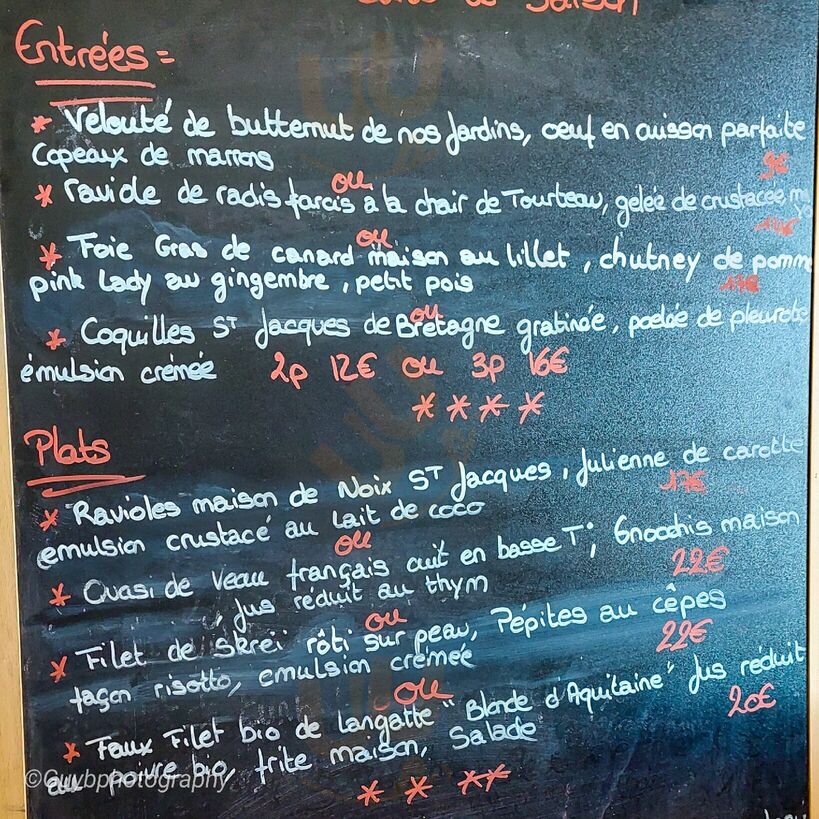 Entrées =
* Velouté de butternut de nos Jardins, oeuf en cuisson parfaite
Copeaux de marrons 9€
ou
* raviole de radis farcis à la chair de Tourteau, gelée de crustacée,
14€
ou
* Foie Gras de canard maison au lillet, chutney de pomme
pink Lady au gingembre, petit pois 17€
ou
* Coquilles ST Jacques de Bretagne gratinée, poelée de pleurote
émulsion crémée 2p 12€ ou 3p 16€
* * * *
Plats
* Ravioles maison de Noix ST Jacques, Julienne de carotte
emulsion crustacé au Lait de coco 17€
ou
* Quasi de Veau français cuit en basse T°, Gnocchis maison
, Jus réduit au thym 22€
ou
* Filet de Skreï rôti sur peau, Pépites au cêpes
façon risotto, emulsion crémée 22€
ou
* Faux Filet bio de Langatte "Blonde d'Aquitaine" Jus réduit
au poivre bio, frite maison, Salade 20€
* * * *
©Guybpphotography